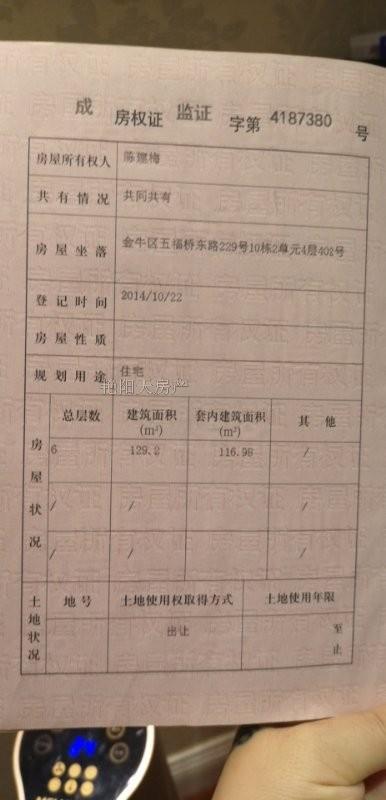 成 房权证 监证 字第 4187380 号
房屋所有权人 陈建梅
共有情况 共同共有
房屋坐落 金牛区五福桥东路229号10栋2单元4层402号
登记时间 2014/10/22
房屋性质
规划用途 住宅
房屋状况 总层数 建筑面积(m²) 套内建筑面积(m²) 其他
6 129.2 116.98 /
/ / /
/ / /
土地状况 地号 土地使用权取得方式 土地使用年限
出让 至
止